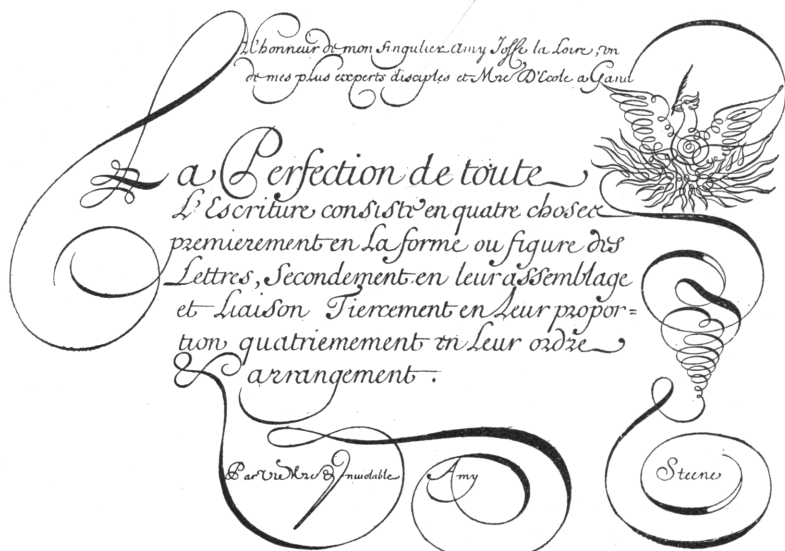 L'honneur de mon singulier Amy Josse la Loire, un
de mes plus experts disciples et Mre D'Ecole a Gand
La Perfection de toute
L'Escriture consiste en quatre choses
premierement en La forme ou figure des
Lettres, Secondement en leur assemblage
et Liaison Tiercement en Leur propor=
tion quatriemement en Leur ordre
arrangement.
Par Mre & Inviolable Amy Steene